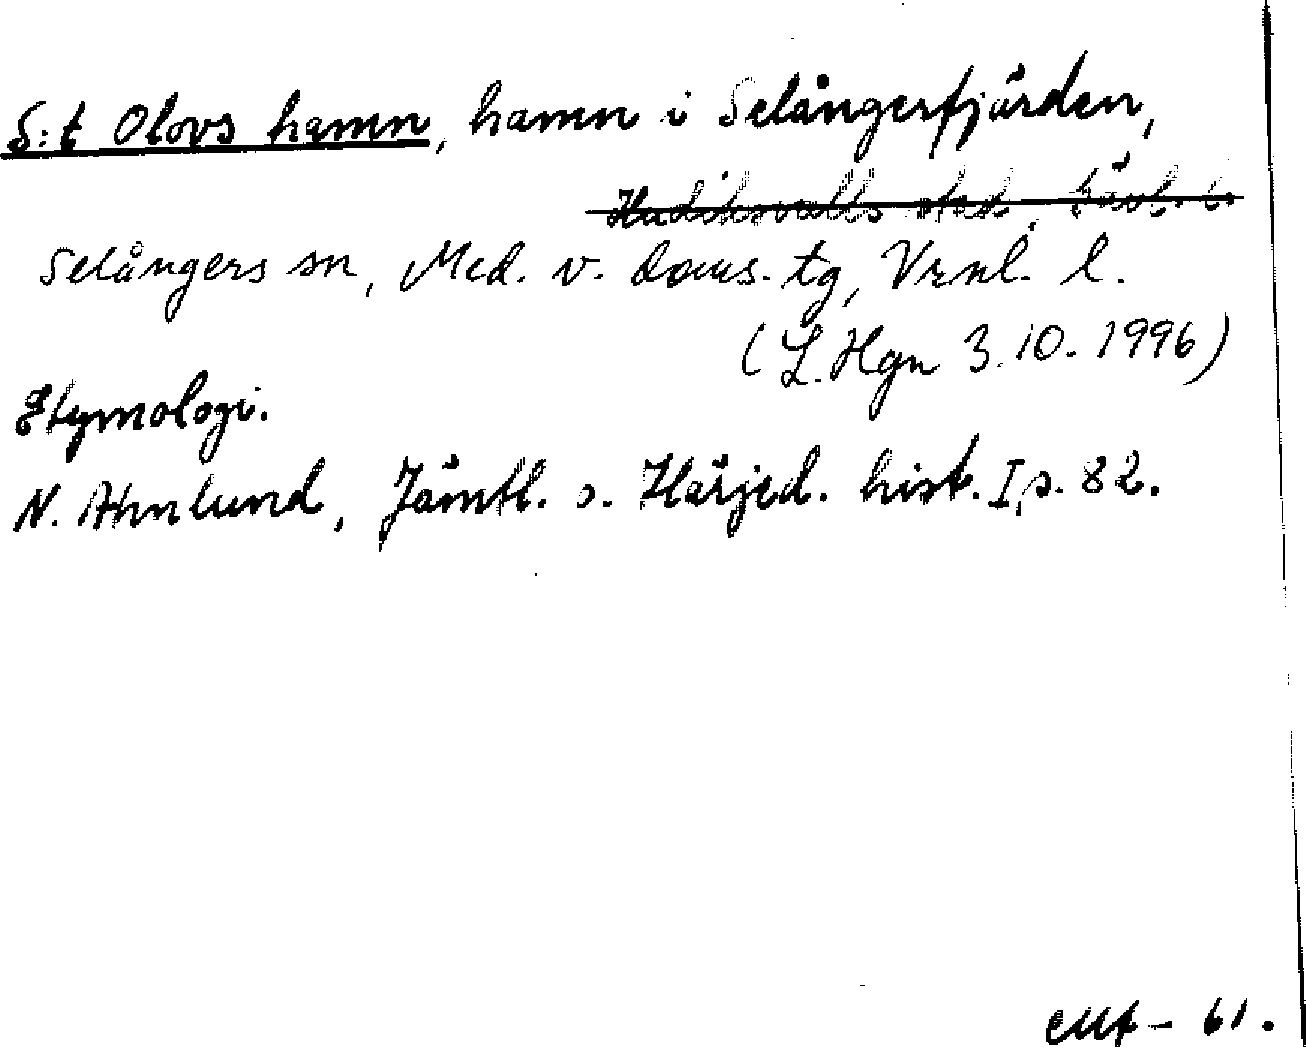 S:t Olovs hamn, hamn i Selångerfjärden,
Hudiksvalls stad, Gävl. l.
Selångers sn, Med. v. doms. tg, Vrnl. l.
(L. Hgn 3.10.1996)
Etymologi.
N. Ahnlund, Jämtl. o. Härjed. hist. I, s. 82.
- 61.